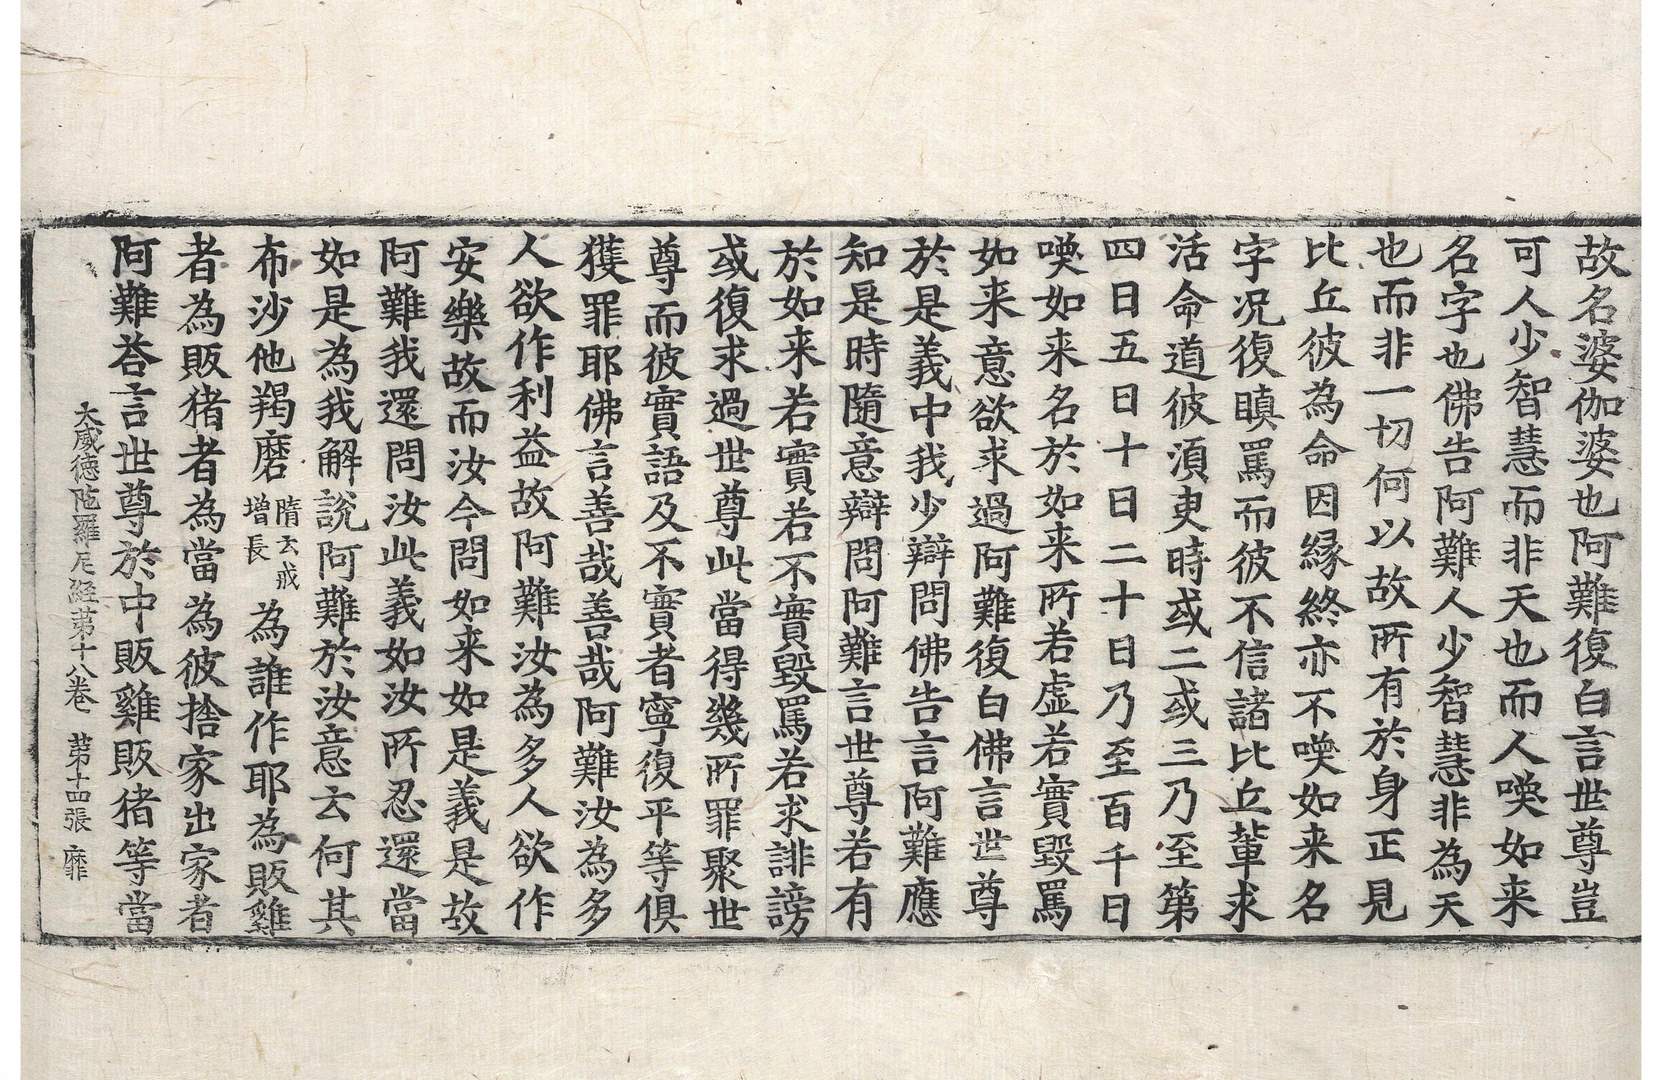 故名婆伽婆也阿難復白言世尊豈
可人少智慧而非天也而人喚如来
名字也佛告阿難人少智慧非為天
也而非一切何以故所有於身正見
比丘彼為命因緣終亦不喚如来名
字况復瞋罵而彼不信諸比丘輩求
活命道彼湏臾時或二或三乃至第
四日五日十日二十日乃至百千日
喚如来名於如来所若虛若實毀罵
如来意欲求過阿難復白佛言世尊
於是義中我少辯問佛告言阿難應
知是時隨意辯問阿難言世尊若有
於如来若實若不實毀罵若求誹謗
或復求過世尊此當得幾所罪聚世
尊而彼實語及不實者寧復平等俱
獲罪耶佛言善哉善哉阿難汝為多
人欲作利益故阿難汝為多人欲作
安樂故而汝今問如来如是義是故
阿難我還問汝此義如汝所忍還當
如是為我解說阿難於汝意云何其
布沙他羯磨隋云戒增長為誰作耶為販雞
者為販猪者為當為彼捨家出家者
阿難荅言世尊於中販雞販猪等當
大威德陁羅尼經第十八卷 第十四張 靡